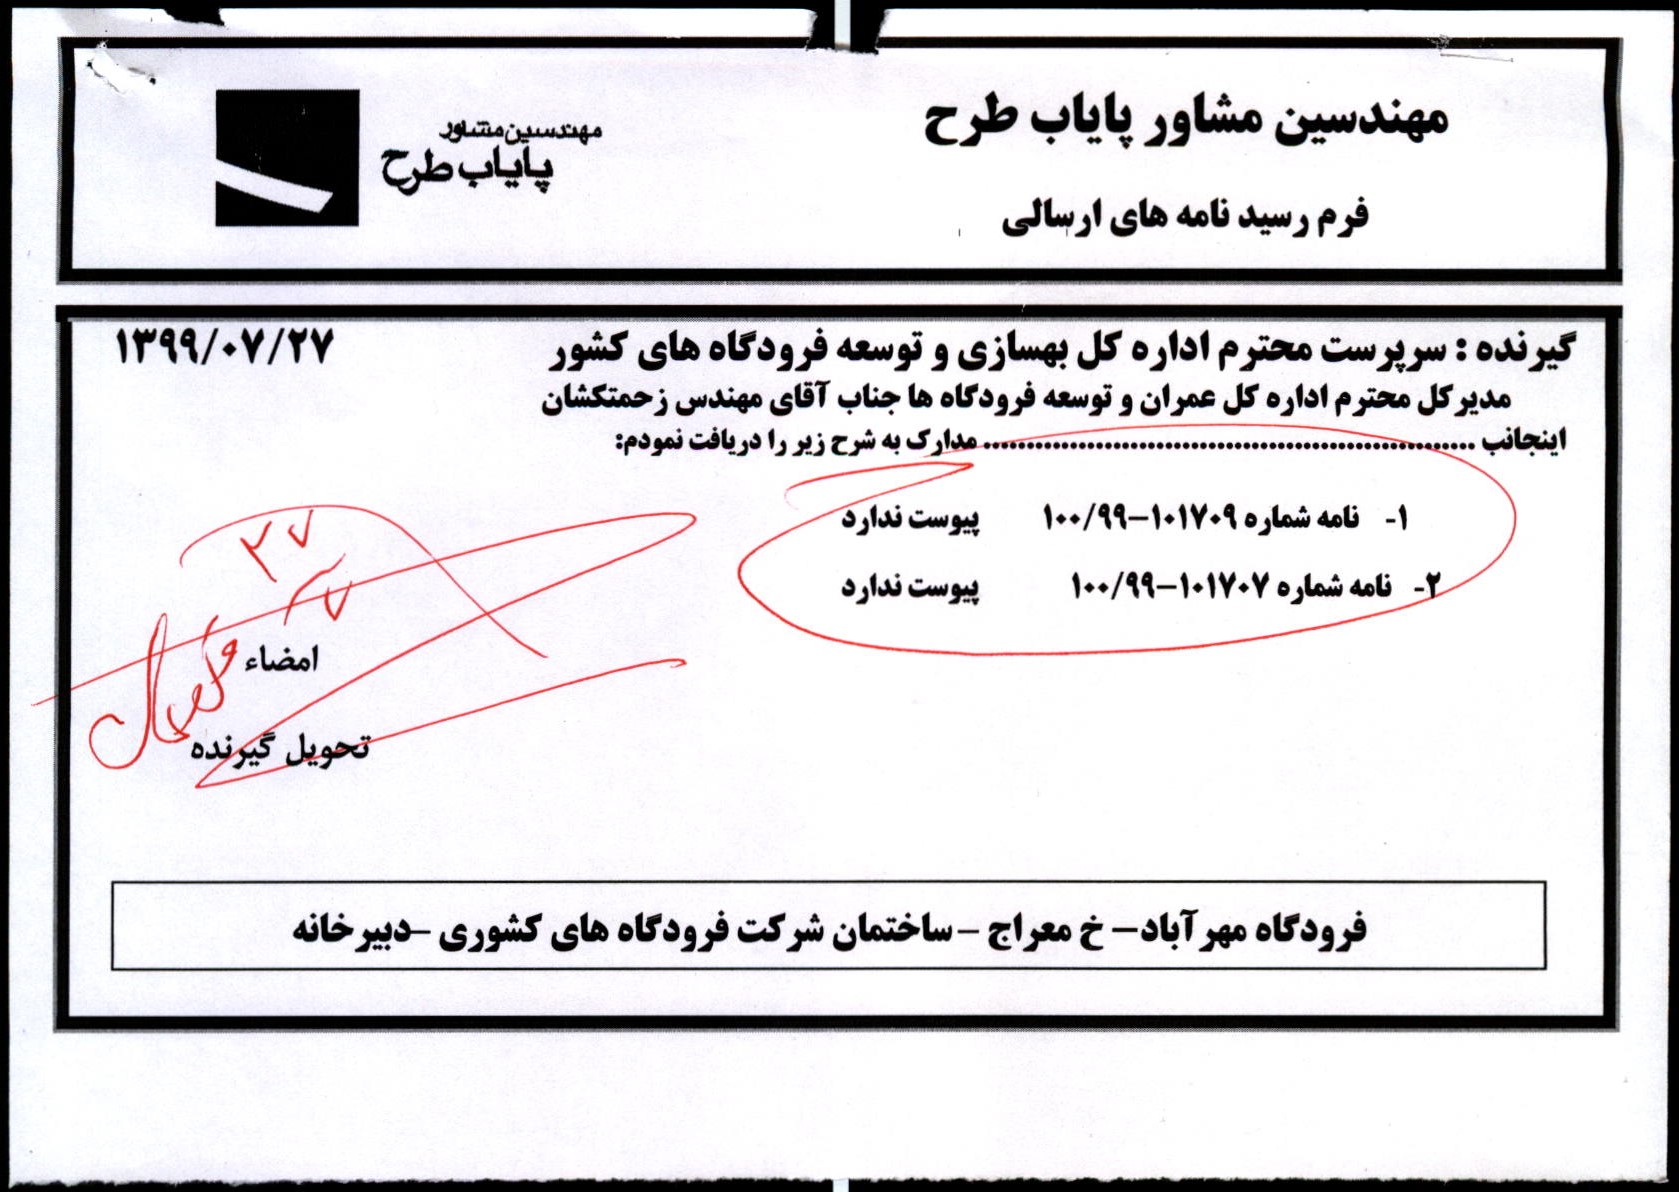 مهندسین مشاور پایاب طرح
فرم رسید نامه های ارسالی
مهندسین مشاور
پایاب طرح
گیرنده : سرپرست محترم اداره کل بهسازی و توسعه فرودگاه های کشور
۱۳۹۹/۰۷/۲۷
مدیرکل محترم اداره کل عمران و توسعه فرودگاه ها جناب آقای مهندس زحمتکشان
اینجانب ........................................................ مدارک به شرح زیر را دریافت نمودم:
۱- نامه شماره ۱۰۱۷۰۹-۱۰۰/۹۹ پیوست ندارد
۲- نامه شماره ۱۰۱۷۰۷-۱۰۰/۹۹ پیوست ندارد
۲۷
۷
امضاء
تحویل گیرنده
فرودگاه مهرآباد– خ معراج –ساختمان شرکت فرودگاه های کشوری –دبیرخانه